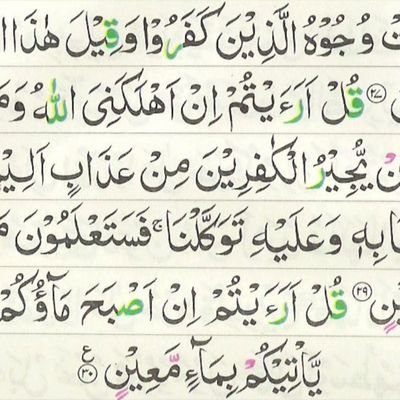 وُجُوْهُ الَّذِيْنَ كَفَرُوْا وَقِيْلَ هٰذَا
۲۷ قُلْ اَرَءَيْتُمْ اِنْ اَهْلَكَنِىَ اللّٰهُ وَمَ
يُّجِيْرُ الْكٰفِرِيْنَ مِنْ عَذَابٍ اَلِيْ
وَعَلَيْهِ تَوَكَّلْنَا ۚ فَسَتَعْلَمُوْنَ
۲۹ قُلْ اَرَءَيْتُمْ اِنْ اَصْبَحَ مَآؤُكُمْ
يَّاْتِيْكُمْ بِمَآءٍ مَّعِيْنٍ ۳۰ ع